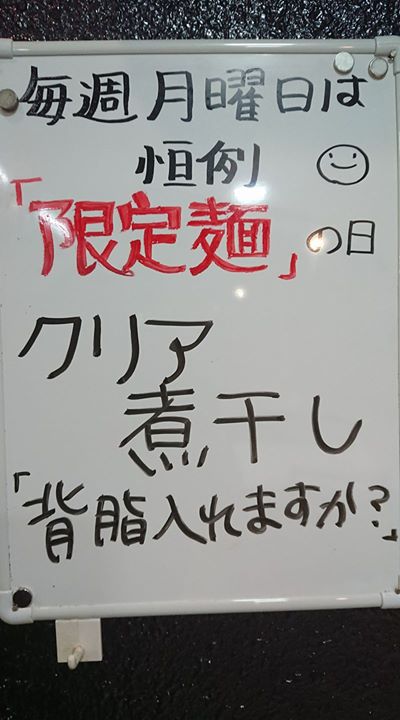 毎週月曜日は
恒例
「限定麺」の日
クリア
煮干し
「背脂入れますか?」